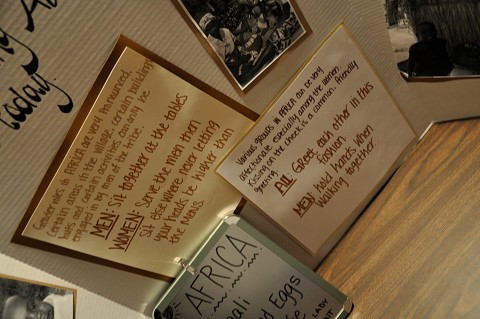 today!
Gender roles in AFRICA are very pronounced.
Certain areas in the village, certain building
types and certain activities can only be
engaged in by men of the tribe.
MEN: Sit together at the tables
WOMEN: Serve the men then
sit else where never letting
your heads be higher than
the mens.
Various groups in AFRICA can be very
affectionate especially among the women.
Kissing on the cheek is a common, friendly
greeting.
ALL: Greet each other in this
fashion
MEN: hold hands when
walking together
AFRICA!
Eggs
LADY